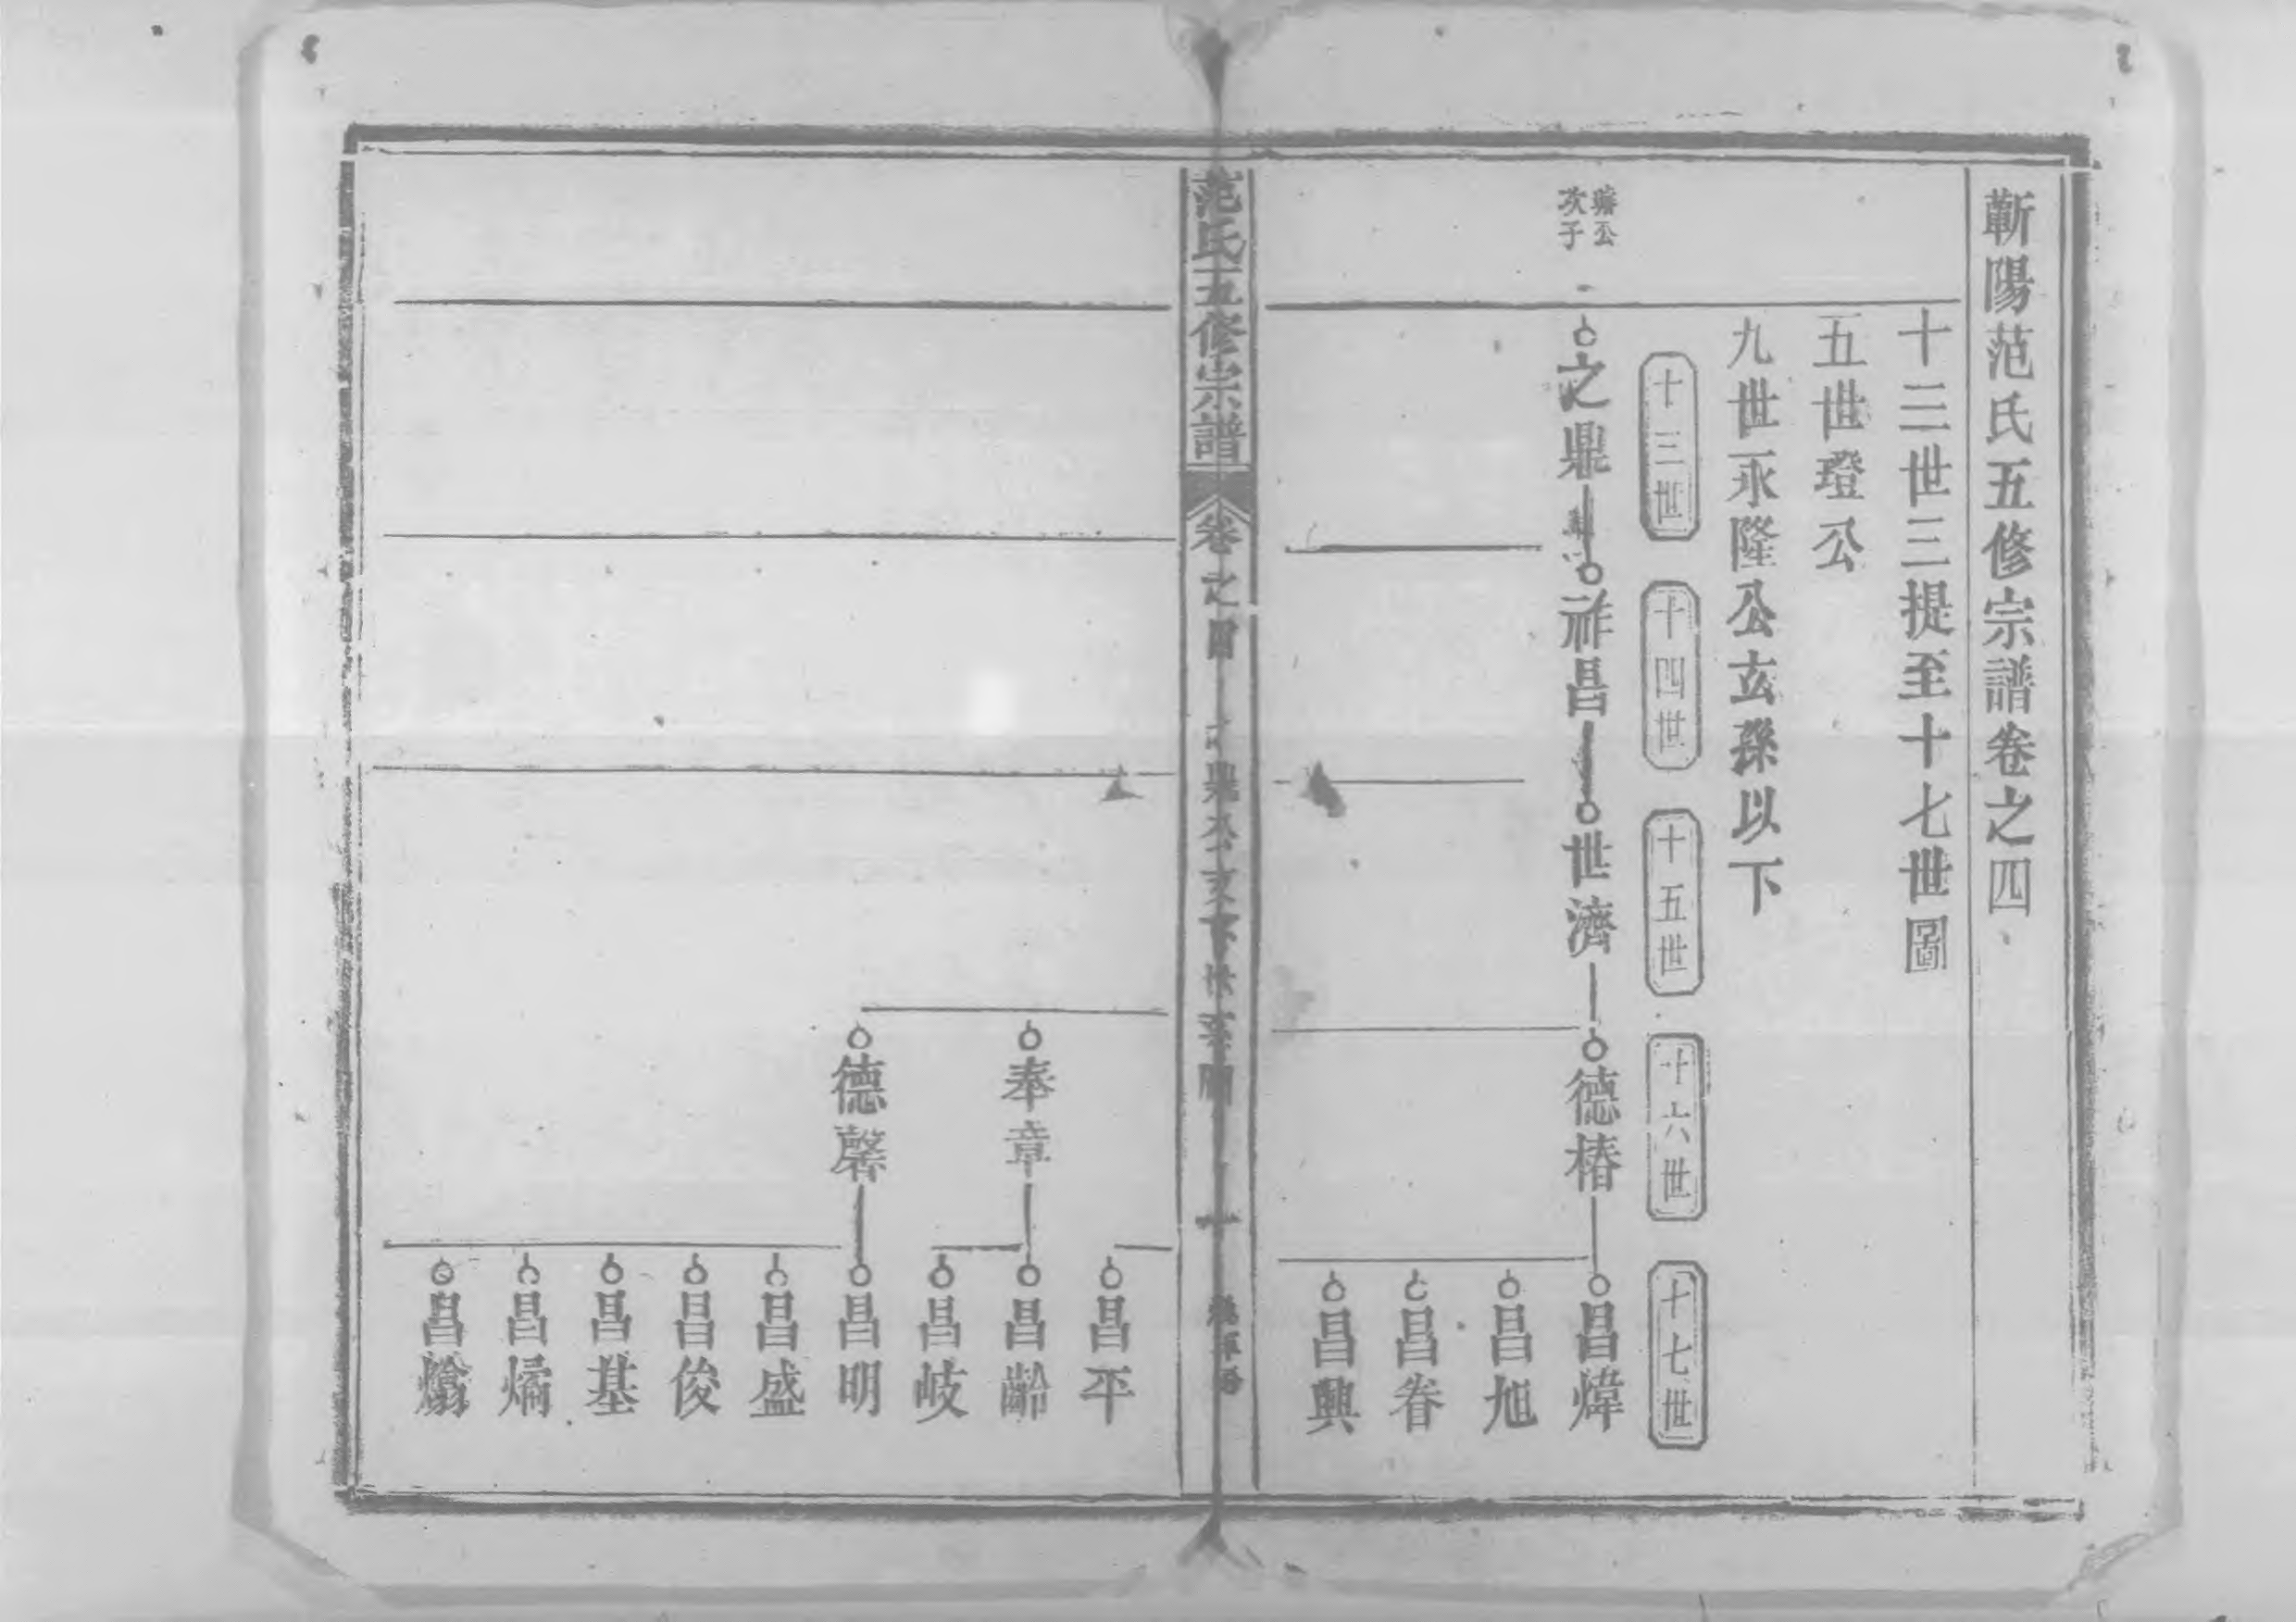 蘄陽范氏五修宗譜卷之四
十三世三提至十七世圖
五世璒公
九世永隆公玄孫以下
十三世
十四世
十五世
十六世
十七世
公
次子
之鼎
祥昌
世濟
德椿
昌煒
昌旭
昌眷
昌興
范氏五修宗譜
卷之四
之鼎公支下世系圖
一
昌平
奉章
昌齡
昌岐
德馨
昌明
昌盛
昌俊
昌基
昌燏
昌熻